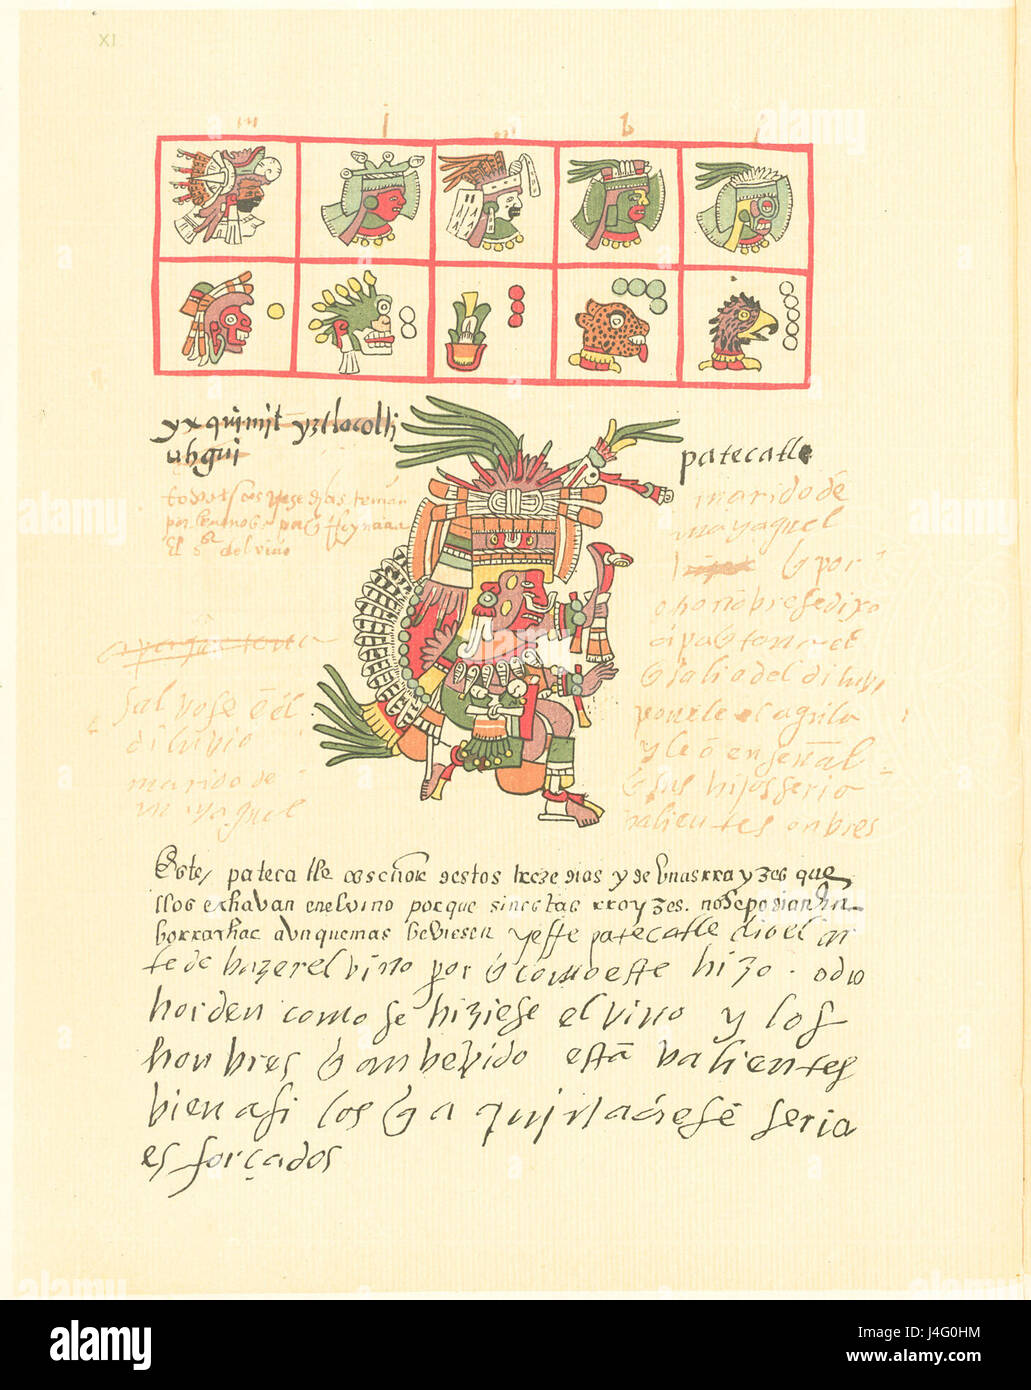 XI
m i m b i
yxquimit yztlacolli
uhqui
patecatle
todos los
el sor del vino
marido de
mayaguel
q por
otro nonbre se dixo
el
del diluvi
por ele el aguila
y leō en señal
q sus hijos serio
valientes onbres
salvose ē el
diluvio
marido de
mayaguel
Este patecatle es señor destos treze dias y de unas rrayzes que
llos echavan en el vino porque sin estas rrayzes. no se podian en
borrachar aunque mas beviesen yeste patecatle dio el ar
te de hazer el vino por q como este hizo . o dio
horden como se hiziese el vino y los
honbres q an bevido estā valientes
bien asi los q a qui naciesē seria
esforçados
alamy
Image ID: J4G0HM
www.alamy.com